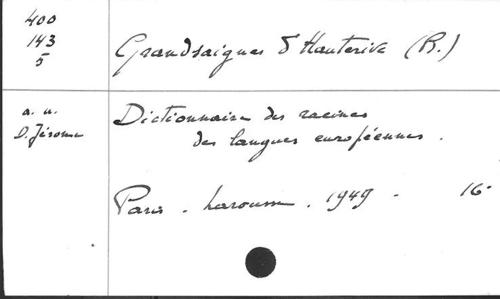 400
143
5
Grandsaignes d'Hauterive (R.)
a. u.
D. Jérome
Dictionnaire des racines
des langues européennes.
Paris. Larousse. 1949 - 16°